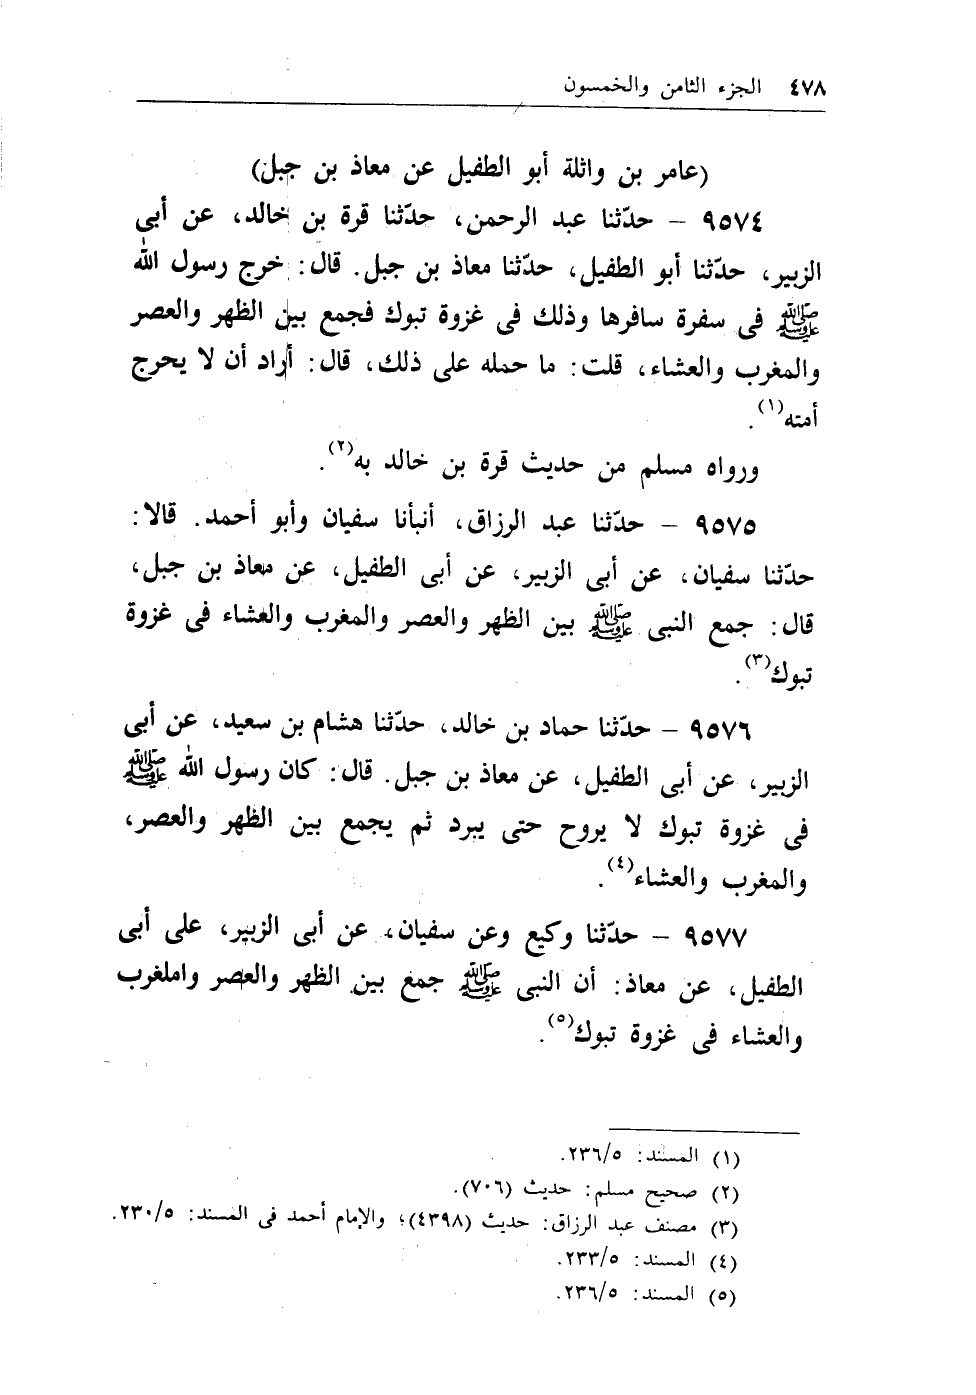 ٤٧٨ الجزء الثامن والخمسون
(عامر بن واثلة أبو الطفيل عن معاذ بن جبل)
٩٥٧٤ - حدّثنا عبد الرحمن، حدّثنا قرة بن خالد، عن أبى
الزبير، حدّثنا أبو الطفيل، حدّثنا معاذ بن جبل. قال: خرج رسول الله
ﷺ فى سفرة سافرها وذلك فى غزوة تبوك فجمع بين الظهر والعصر
والمغرب والعشاء، قلت: ما حمله على ذلك، قال: أراد أن لا يحرج
أمته(١).
ورواه مسلم من حديث قرة بن خالد به(٢).
٩٥٧٥ - حدّثنا عبد الرزاق، أنبأنا سفيان وأبو أحمد. قالا:
حدّثنا سفيان، عن أبى الزبير، عن أبى الطفيل، عن معاذ بن جبل،
قال: جمع النبى ﷺ بين الظهر والعصر والمغرب والعشاء فى غزوة
تبوك(٣).
٩٥٧٦ - حدّثنا حماد بن خالد، حدّثنا هشام بن سعيد، عن أبى
الزبير، عن أبى الطفيل، عن معاذ بن جبل. قال: كان رسول الله ﷺ
فى غزوة تبوك لا يروح حتى يبرد ثم يجمع بين الظهر والعصر،
والمغرب والعشاء(٤).
٩٥٧٧ - حدّثنا وكيع وعن سفيان، عن أبى الزبير، على أبى
الطفيل، عن معاذ: أن النبى ﷺ جمع بين الظهر والعصر واملغرب
والعشاء فى غزوة تبوك(٥).
(١) المسند: ٢٣٦/٥.
(٢) صحيح مسلم: حديث (٧٠٦).
(٣) مصنف عبد الرزاق: حديث (٤٣٩٨)؛ والإمام أحمد فى المسند: ٢٣٠/٥.
(٤) المسند: ٢٣٣/٥.
(٥) المسند: ٢٣٦/٥.